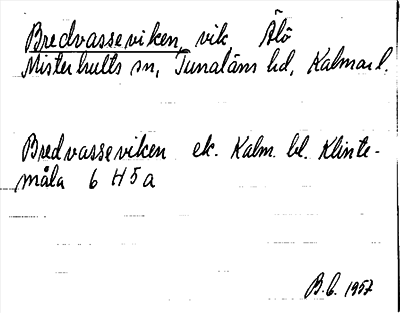 Bredvasseviken, vik Älö
Misterhults sn, Tunaläns hd, Kalmar l.
Bredvasseviken ek. Kalm. bl. Klinte-
måla 6 H 5 a
B.C. 1957